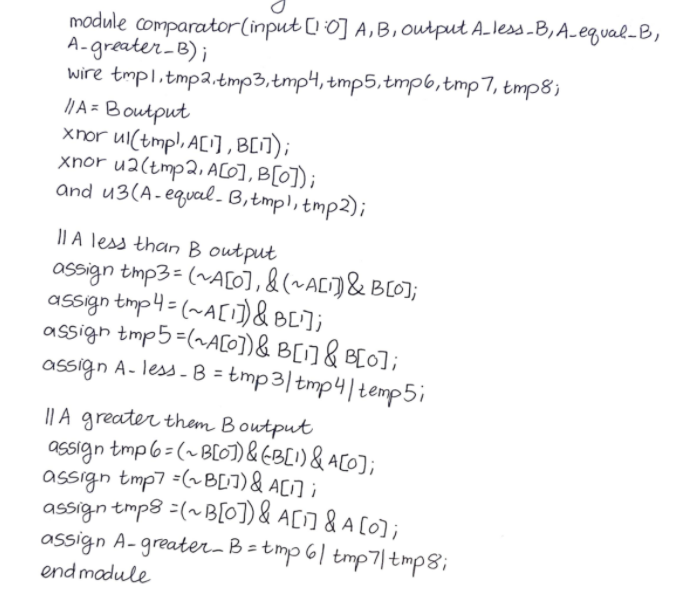 module comparator(input [1:0] A,B, output A_less_B,A_equal_B,
A_greater_B);
wire tmp1,tmp2,tmp3,tmp4,tmp5,tmp6,tmp7,tmp8;
//A=B output
xnor u1(tmp1,A[1],B[1]);
xnor u2(tmp2,A[0],B[0]);
and u3(A_equal_B,tmp1,tmp2);
//A less than B output
assign tmp3=(~A[0],&(~A[1])&B[0];
assign tmp4=(~A[1])&B[1];
assign tmp5=(~A[0])&B[1]&B[0];
assign A_less_B=tmp3|tmp4|temp5;
//A greater them B output
assign tmp6=(~B[0])&(~B[1)&A[0];
assign tmp7=(~B[1])&A[1];
assign tmp8=(~B[0])&A[1]&A[0];
assign A_greater_B=tmp6|tmp7|tmp8;
endmodule